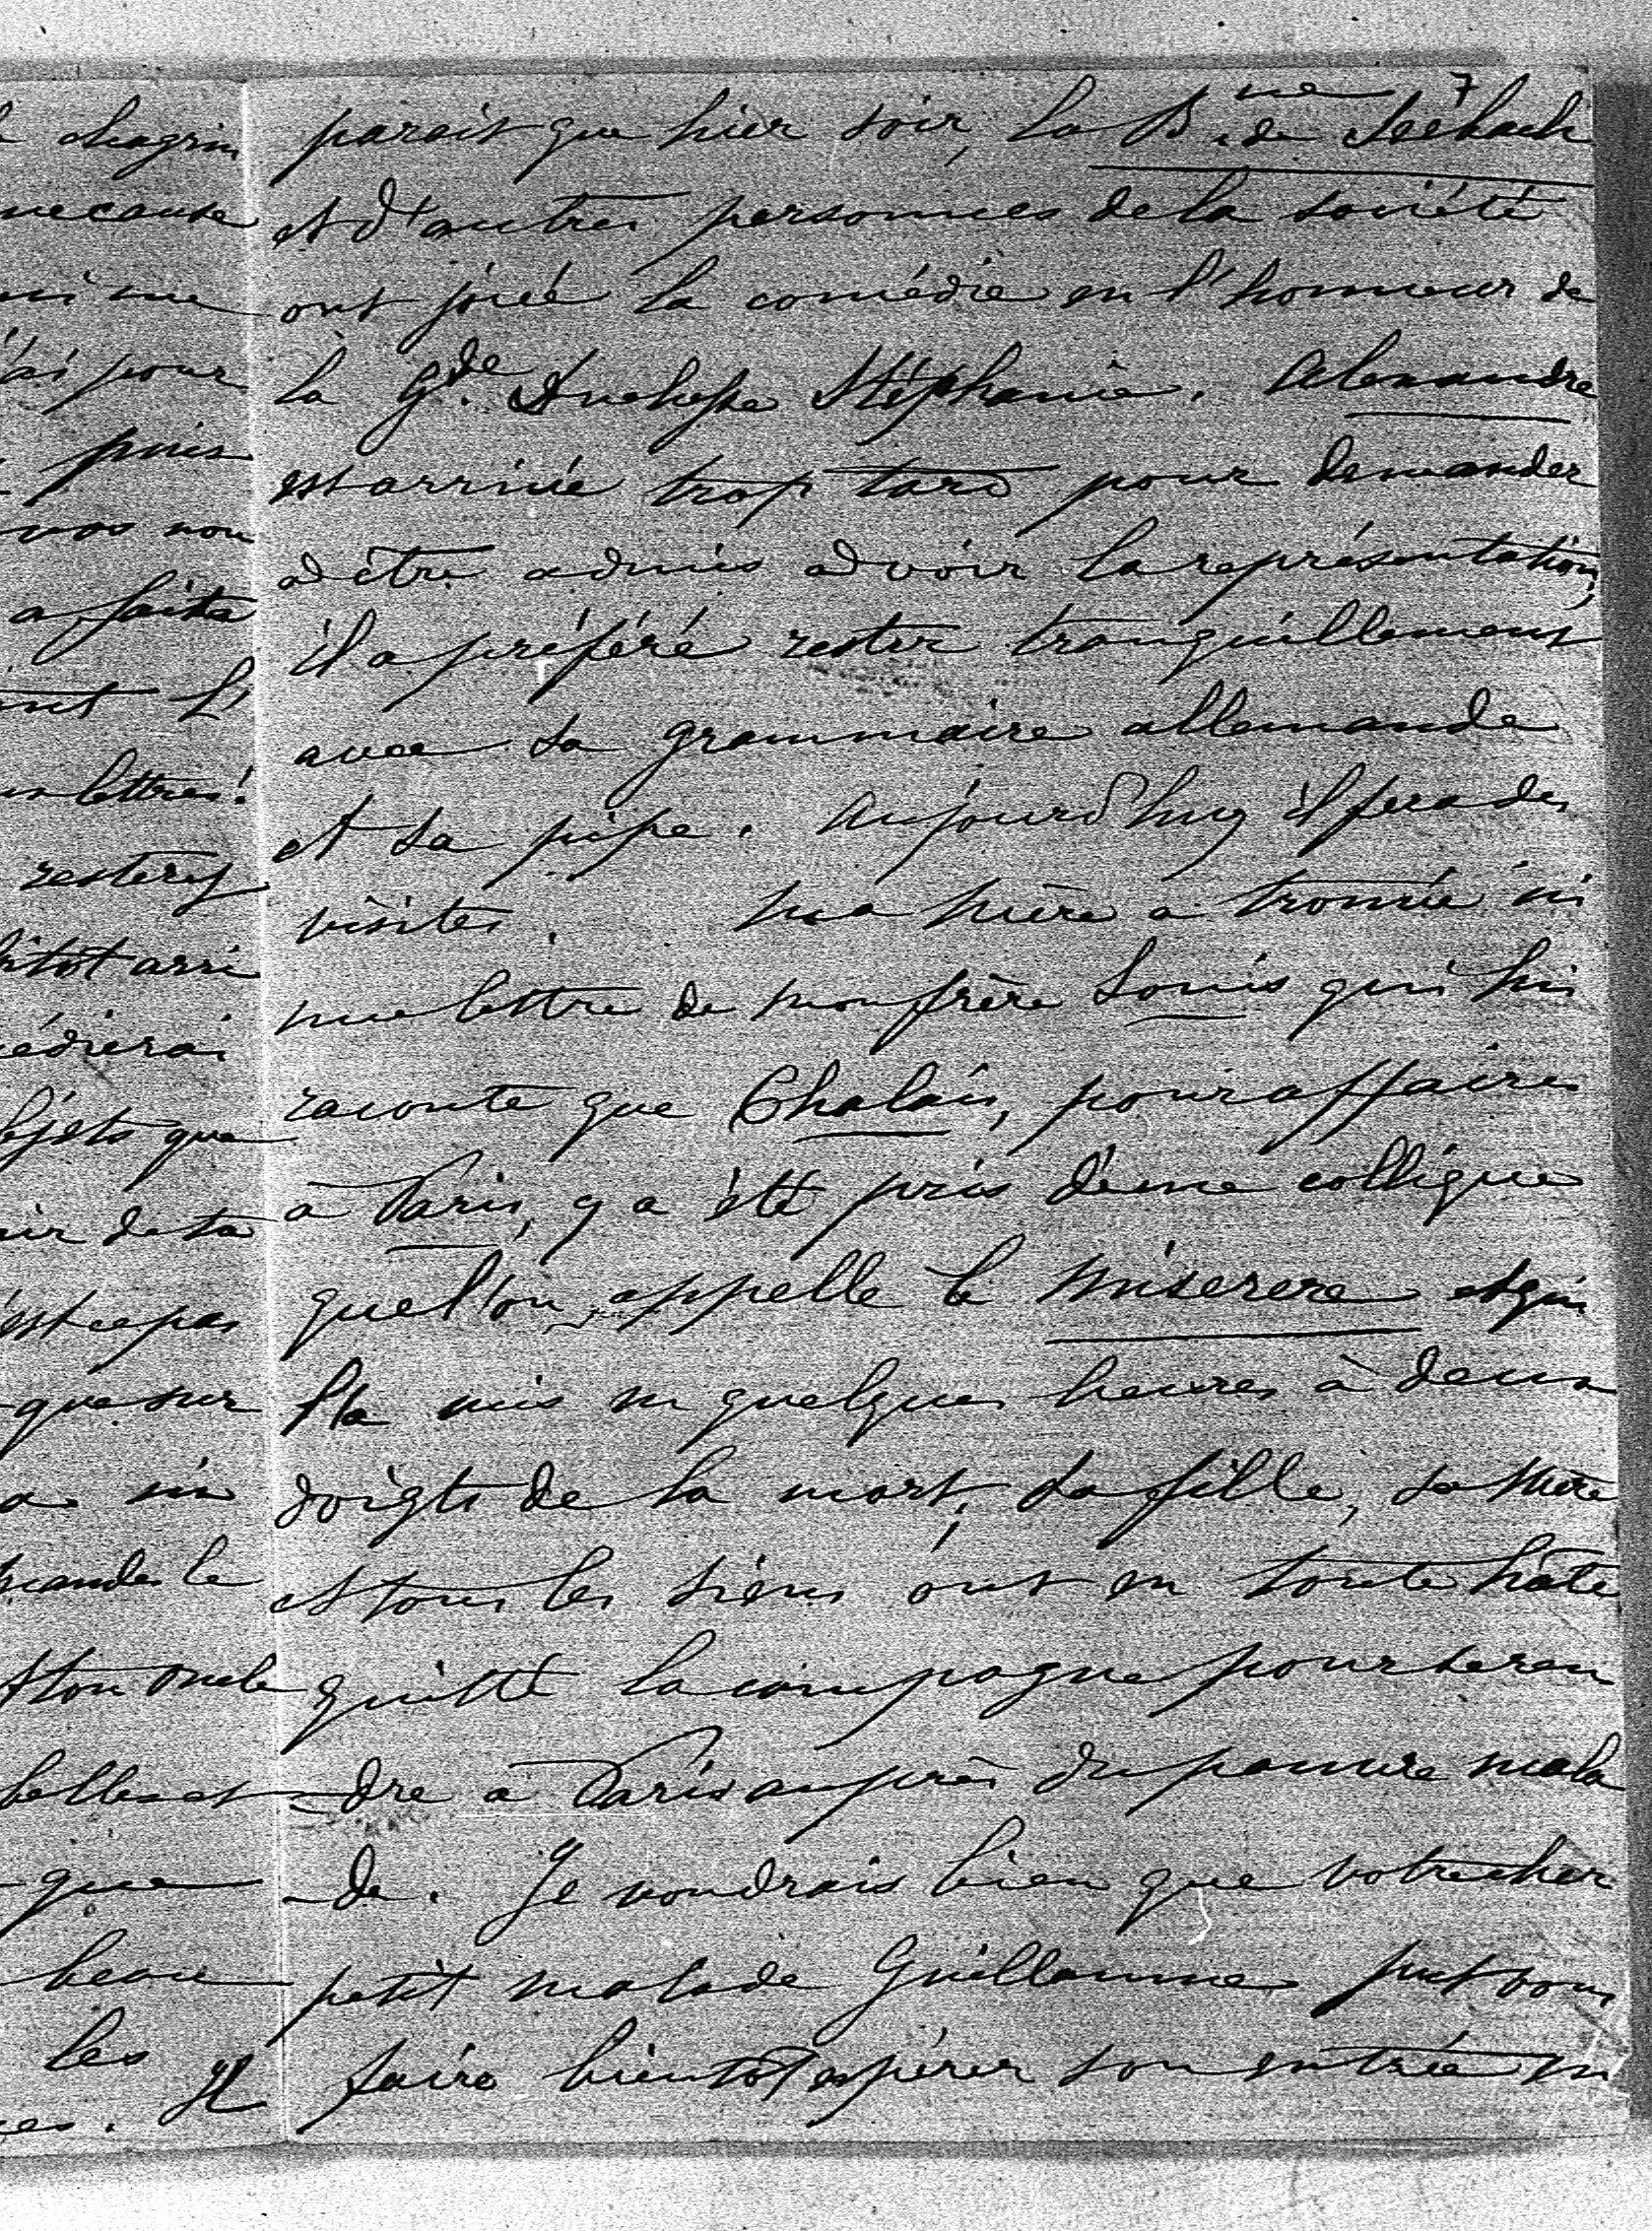 7
parait que hier soir, la Bne de Seebach
et d'autres personnes de la société
ont joué la comédie en l'honneur de
la Gde Duchesse Stéphanie. Alexandre
est arrivé trop tard pour demander
à être admis à voir la représentation,
il a préféré rester tranquillement
avec sa grammaire allemande
et sa pipe. Aujourd'huy il fera des
visites. Ma mère a trouvé ici
une lettre de mon frère Louis qui lui
raconte que Chalais, pour affaires
à Paris, y a été pris d'une collique
que l'on appelle le miserere et qui
l'a mis en quelques heures à deux
doigts de la mort; sa fille, sa mère
et tous les siens ont en toute hâte
quitté la campagne pour se ren
-dre à Paris auprès du pauvre mala
-de. Je voudrais bien que votre cher
petit malade Guillaume put vous
faire bientôt espérer son entrée en
chagrin
me cause
j'ai pour
puis
vos nou
a faite
L'
lettres!
resterez
bientôt arri
objets que
de ta
est ce pas
que sur
mandes le
et ton oncle
belles et
que
beau
les
Il